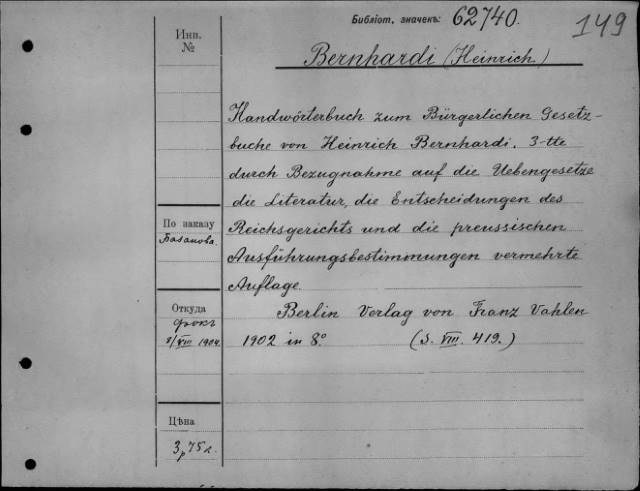 Библіот. значекъ: 62740.
149
Инв.
№
Bernhardi (Heinrich)
Handwörterbuch zum Bürgerlichen Gesetz-
buche von Heinrich Bernhardi. 3-tte
durch Bezugnahme auf die Uebengesetze
die Literatur, die Entscheidungen des
По заказу
Reichsgerichts und die preussischen
Базанова.
Ausführungsbestimmungen vermehrte
Auflage.
Откуда
Berlin Verlag von Franz Vahlen
8/VIII 1904.
1902 in 8° (S. VIII. 419.)
Цѣна
3р75к.